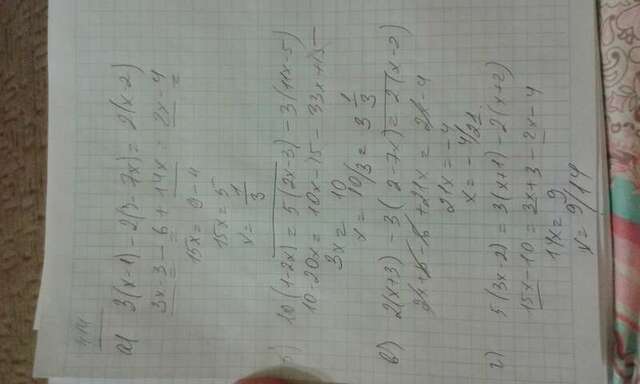 а) 3(x-1) - 2(3-7x) = 2(x-2)
3x-3-6+14x = 2x-4
15x = 9-4
15x = 5
x = 1/3
б) 10(1-2x) = 5(2x-3) - 3(11x-5)
10-20x = 10x-15-33x+15
3x = 10
x = 10/3 = 3 1/3
в) 2(x+3) - 3(2-7x) = 2(x-2)
2x+6-6+21x = 2x-4
21x = -4
x = -4/21
г) 5(3x-2) = 3(x+1) - 2(x+2)
15x-10 = 3x+3-2x-4
14x = 9
x = 9/14